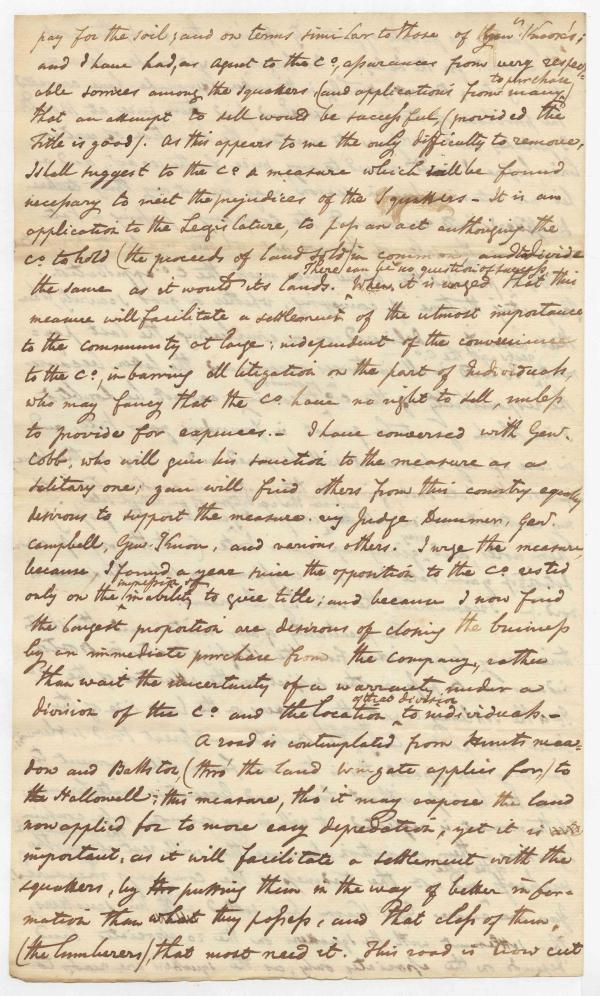 pay for the soil; and on terms similar to those of Genl. Knox's;
and I have had, as agent to the Co, assurances from very respect-
able sources among the squatters (and applications from many)
to purchase
that an attempt to sell would be successful, (provided the
Title is good). As this appears to me the only difficulty to remove,
I shall suggest to the Co a measure which will be found
necessary to meet the prejudices of the Squatters - It is an
application to the Legislature, to pass an act authorizing the
Co to hold (the proceeds of land sold) in common, and to divide
the same as it would its lands. There can be no question of success
When, it is urged that this
measure will facilitate a settlement of the utmost importance
to the community at large; independent of the convenience
to the Co, in barring all litigation on the part of Individuals,
who may fancy that the Co have no right to sell, unless
to provide for expences. - I have conversed with Genl.
Cobb, who will give his sanction to the measure as a
solitary one; you will find others from this country equally
desirous to support the measure. viz Judge Dummer, Genl.
Campbell, Genl. Knox, and various others. I urge the measure,
because, I found a year since the opposition to the Co rested
only on the impression of
inability to give title; and because I now find
the largest proportion are desirous of closing the business
by an immediate purchase from the company, rather
than wait the uncertainty of a warranty under a
division of the Co and the location of that division
to individuals. -
A road is contemplated from Hunts mea-
dow and Ballston, (thro' the land Wingate applies for,) to
the Hallowell; this measure, tho' it may expose the land
now applied for to more easy depredation, yet it is
important, as it will facilitate a settlement with the
squatters, by putting them in the way of better infor-
mation than what they possess, and that class of them,
(the lumberers), that most need it. This road is now cut